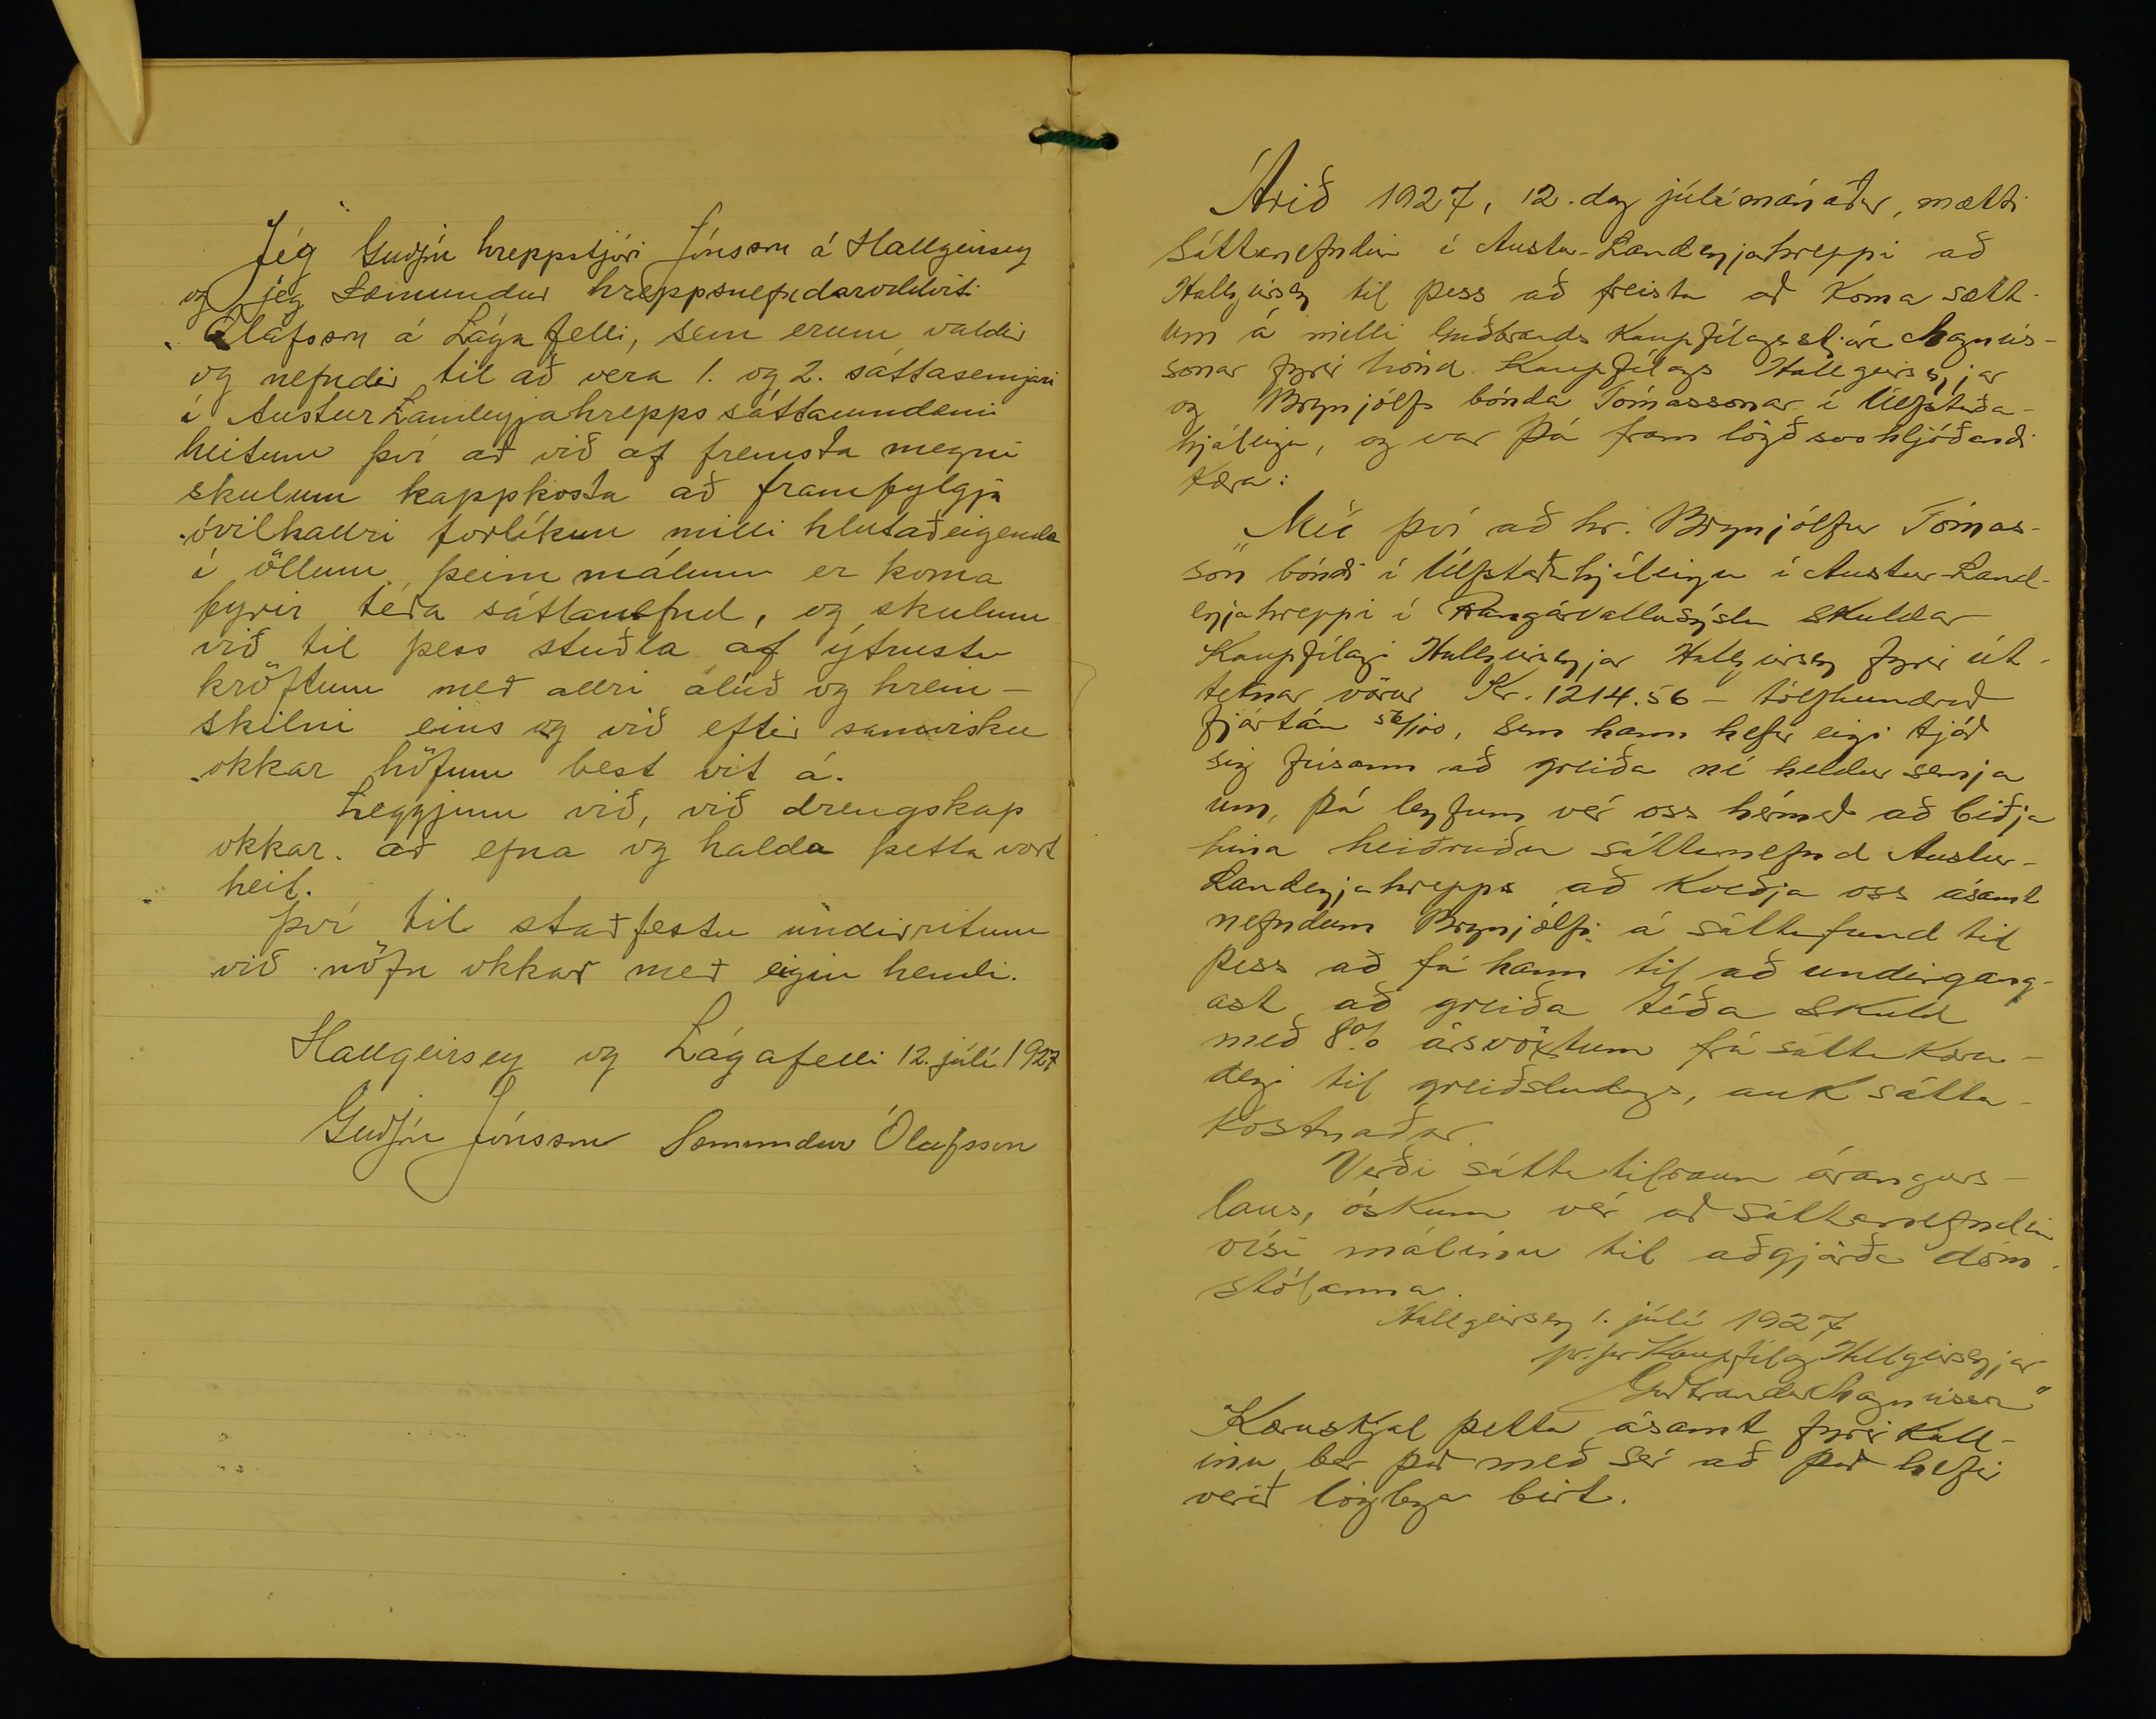 Jég Guðjón hreppstjóri Jónsson á Hallgeirsey
og jég Sæmundur hreppsnefndaroddviti
Ólafsson á Lágafelli, sem erum valdir
og nefndir til að vera 1. og 2. sáttasemjari
í Austur Landeyjahrepps sáttaumdæmi
heitum því að við af fremsta megni
skulum kappkosta að framfylgja
óvilhallri forlíkun milli hlutaðeigenda
í öllum þeim málum er koma
fyrir téða sáttanefnd, og skulum
við til þess stuðla af ýtrustu
kröftum með allri alúð og hrein-
skilni eins og við eftir samvisku
okkar höfum best vit á.
Leggjum við, við drengskap
okkar að efna og halda þetta vort
heit.
Því til staðfestu undirritum
við nöfn okkar með eigin hendi.
Hallgeirsey og Lágafelli 12. júlí 1927
Guðjón Jónsson Sæmundur Ólafsson
Árið 1927, 12. dag júlímánaðar, mætti
Sáttanefndin í Austur-Landeyjahreppi að
Hallgeirsey til þess að freista að koma sætt-
um á milli Guðbrands kaupfélagsstjóra Magnús-
sonar fyrir hönd Kaupfélags Hallgeirseyjar
og Brynjólfs bónda Tómassonar í Úlfstaða-
hjáleigu, og var þá fram lögð svohljóðandi
kæra:
"Með því að hr. Brynjólfur Tómas-
son bóndi í Úlfstaðahjáleigu í Austur-Land-
eyjahreppi í Rangárvallasýslu skuldar
Kaupfélagi Hallgeirseyjar Hallgeirsey fyrir út-
teknar vörur Kr. 1214.56 - tólfhundruð
fjórtán 56/100, sem hann hefir eigi tjáð
sig fúsann að greiða né heldur semja
um, þá leyfum vér oss hérmeð að biðja
hina heiðruðu sáttanefnd Austur-
Landeyjahrepps að kveðja oss ásamt
nefndum Brynjólfi á sáttafund til
þess að fá hann til að undirgang-
ast að greiða téða skuld
með 8% ársvöxtum frá sáttakæru-
degi til greiðsludags, auk sátta-
kostnaðar.
Verði sáttatilraun árangurs-
laus, óskum vér að sáttanefndin
vísi málinu til aðgjörða dóm-
stólanna.
Hallgeirsey 1. júlí 1927
pr. pr Kaupfélag Hallgeirseyjar
Guðbrandur Magnússon"
Kæruskjal þetta ásamt fyrirkall-
inu ber það með sér að það hefir
verið löglega birt.